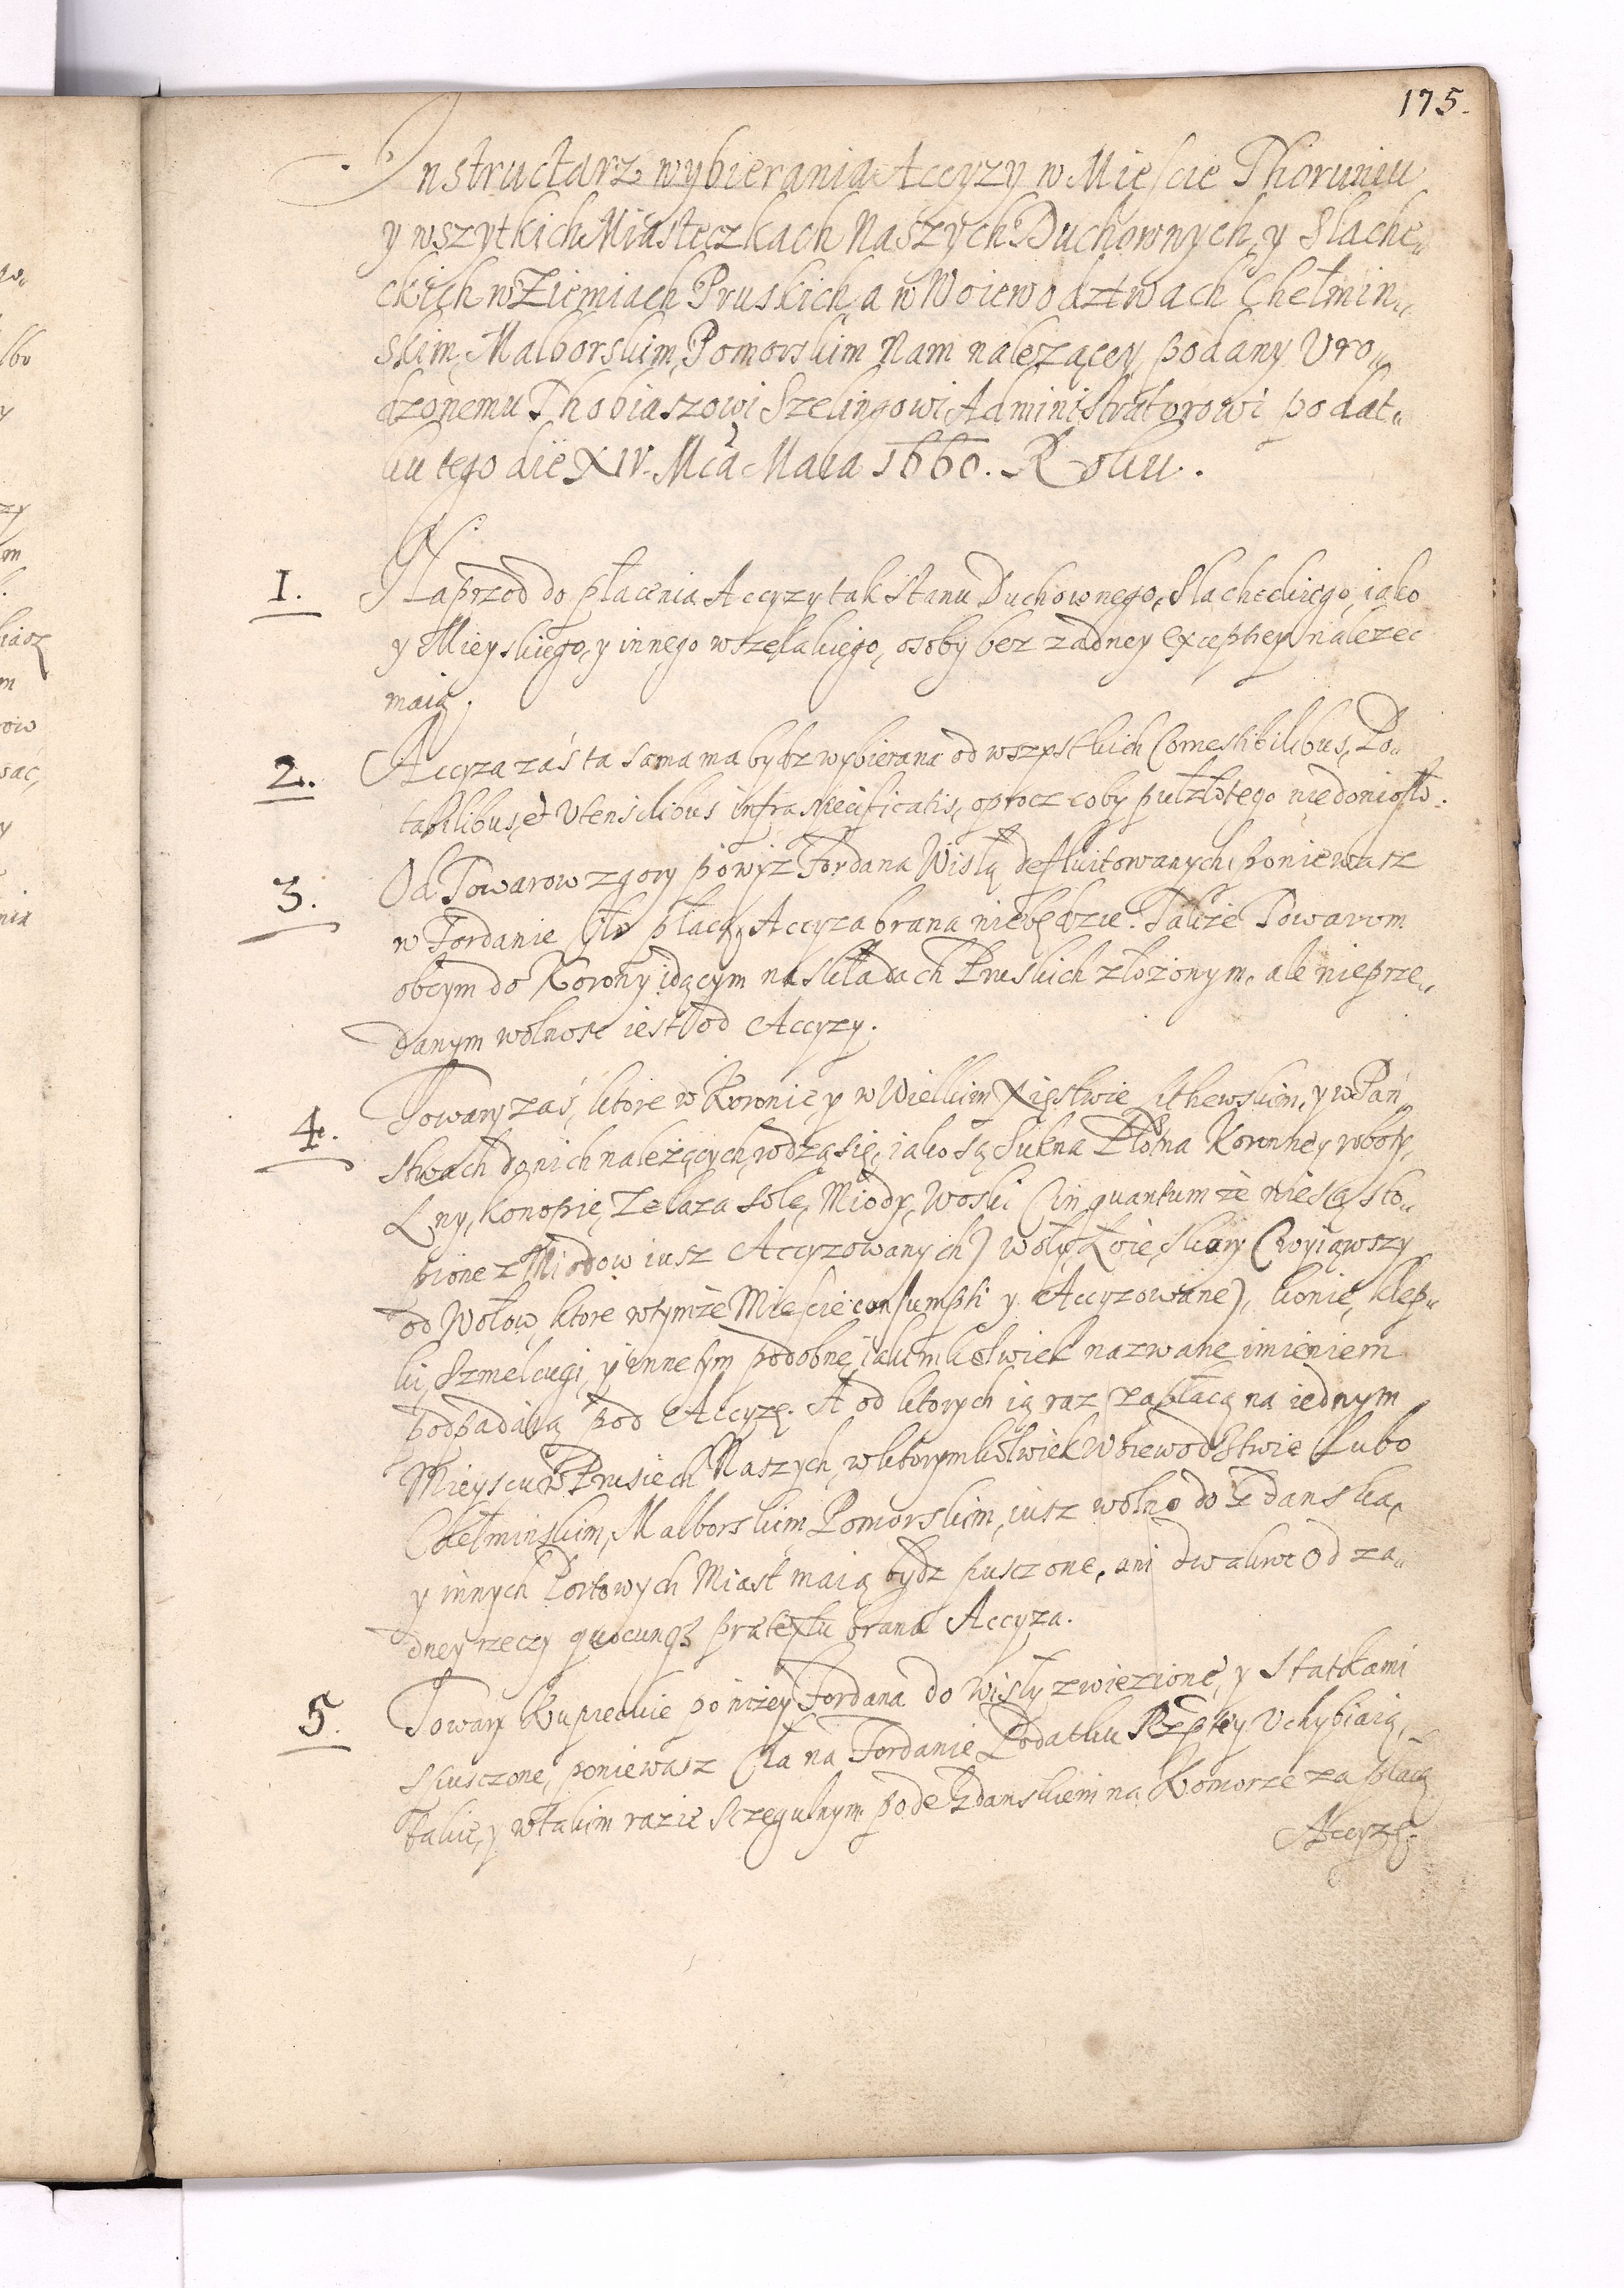 175.
Instructarz wybierania Accyzy w Mieście Thoruniu
y wszytkich Miasteczkach Naszych Duchownych, y Slache„
ckich w Ziemiach Pruskich, a w Woiewodztwach Chełmin„
skim, Malborskim, Pomorskim Nam należącey, podany Uro„
dzonemu Thobiaszowi Szelingowi Administratorowi podat„
ku tego die XIV. Mca Maia 1660. Roku.
1. Naprzod do płacenia Accyzy tak Stanu Duchownego, Slacheckiego, iako
y Mieyskiego, y innego wszelakiego, osoby bez zadney exceptiey nalezec
maią.
2. Accyza zaś ta sama ma bydz wybierana od wszystkich Comestibilibus, Po„
tabilibus, et Utensilibus infra specificatis, oprocz coby pułzłotego niedoniosło.
3. Od Towarow z gory powyż Fordana Wisłą defluitowanych, poniewasz
w Fordanie Cło płacą, Accyza brana niebędzie. Także Towarom
obcym do Korony idącym na składach Pruskich złożonym, ale nieprze„
danym wolność iest od Accyzy.
4. Towary zaś, ktore w Koronie y w Wielkim Xięstwie Lithewskim, y w Pań„
stwach do nich należących, rodzą się, iako są Sukna Płótna Koronney roboty,
Lny, konopie, Zelaza sole, Miody, Woski (in quantum że nie są sto„
pione z Miodow iusz Accyzowanych) woły, Łoie, skury (wyiąwszy
od Wołow, ktore w tymże Mieście consumpti y Accyzowane), konie, klep„
ki, Szmelcugi, y inne tym podobne, iakimkolwiek nazwane imieniem
podpadaią pod Accyzę. A od ktorych ią raz zapłacą na iednym
Mieyscu w Prusiech Naszych, w ktorymkolwiek Woiewodstwie Lubo
Chełminskim, Malborskim Pomorskim, iusz wolno do Gdanska,
y innych Portowych Miast maią bydz puszczone, ani dwakroc od za„
dney rzeczy quocunq3 prætextu brana Accyza.
5. Towary Kupieckie poniżey Fordana do Wisły zwiezione, y Statkami
spusczone, poniewasz Cła na Fordanie Podatku Rzptey Uchybiaią,
takie, y w takim razie Sczegulnym pode Gdanskiem na Komorze zapłacą
Accyzę.